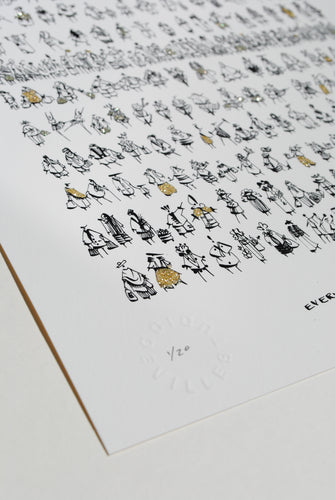 EVER
1/20
VILLES